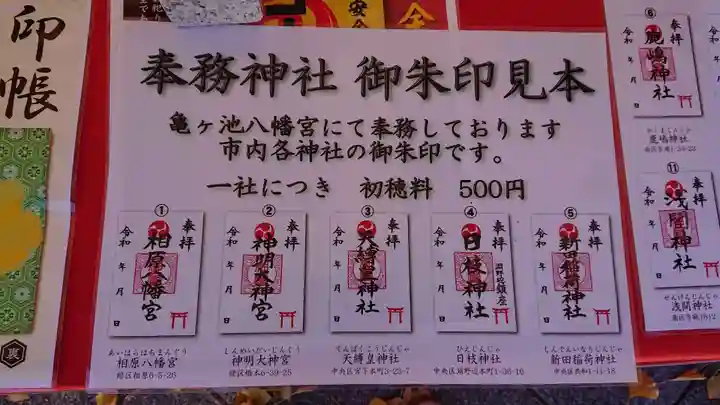 奉務神社 御朱印見本
亀ヶ池八幡宮にて奉務しております
市内各神社の御朱印です。
一社につき 初穂料 500円
①
奉拝
相原八幡宮
令和 年 月 日
あいはらはちまんぐう
相原八幡宮
緑区相原6-5-26
②
奉拝
神明大神宮
令和 年 月 日
しんめいだいじんぐう
神明大神宮
緑区橋本6-39-25
③
奉拝
天縛皇神社
令和 年 月 日
てんばくこうじんじゃ
天縛皇神社
中央区宮下本町3-23-7
④
奉拝
日枝神社
令和 年 月 日
ひえじんじゃ
日枝神社
⑤
奉拝
新田稲荷神社
令和 年 月 日
しんでんいなりじんじゃ
新田稲荷神社
⑥
奉拝
鹿嶋神社
令和 年 月 日
鹿嶋神社
⑪
奉拝
浅間神社
令和 年 月 日
せんげんじんじゃ
浅間神社
印帳
裏
安全